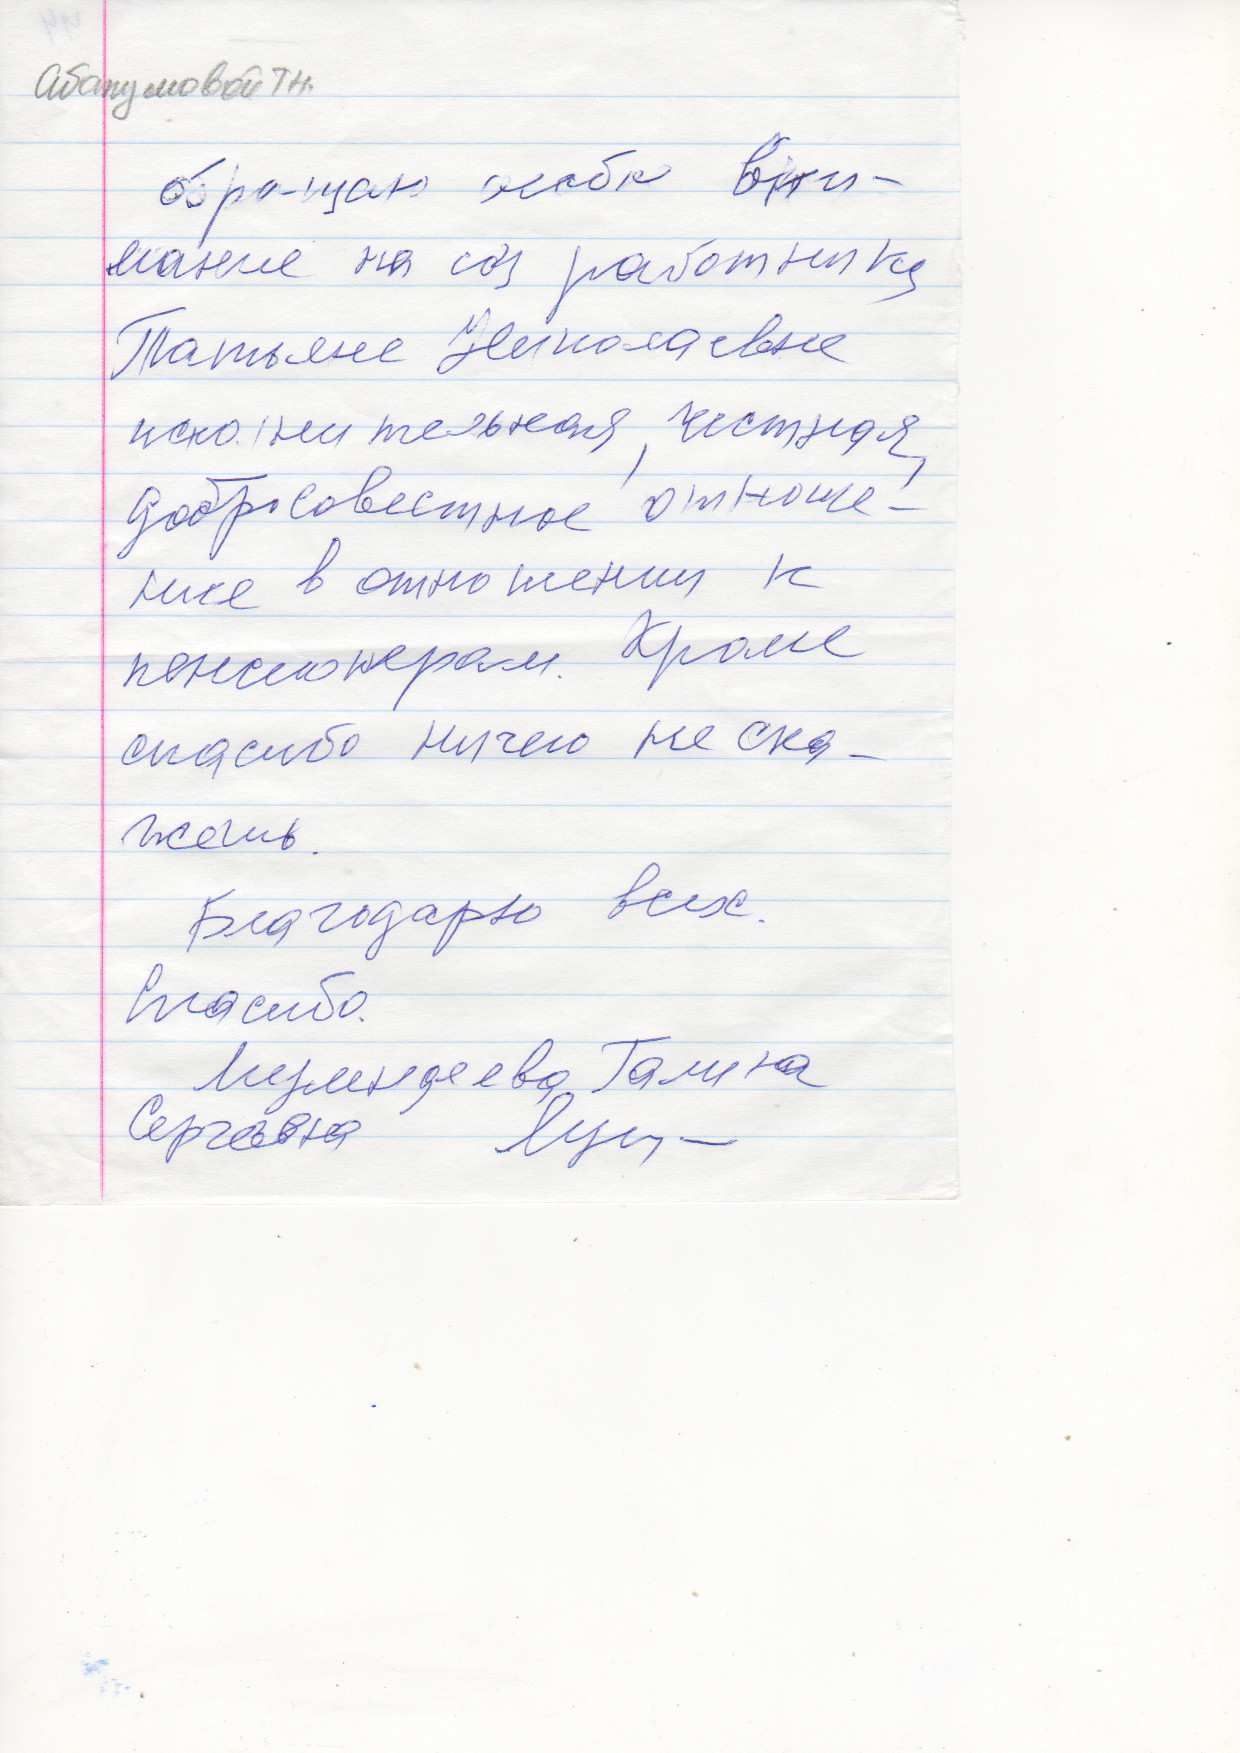 Абакумовой Т.Н.
обращаю особо вни-
мание на соц работнику
Татьяне Николаевне
исполнительная, честная,
добросовестное отноше-
ние в отношении к
пенсионерам. Кроме
спасибо ничего не ска-
жешь.
Благодарю всех.
Спасибо.
Галина
Сергевна